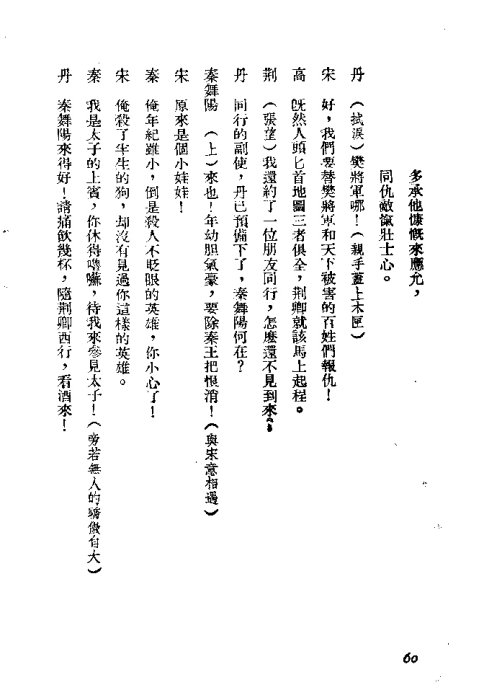 多承他慷慨來應允，
同仇敵愾壯士心。
丹　（拭淚）樊將軍哪！（親手蓋上木匣）
宋　好，我們要替樊將軍和天下被害的百姓們報仇！
高　旣然人頭匕首地圖三者俱全，荆卿就該馬上起程。
荆　（張望）我還約了一位朋友同行，怎麼還不見到來。
丹　同行的副使，丹已預備下了，秦舞陽何在？
秦舞陽　（上）來也！年幼胆氣豪，要除秦王把恨消！（與宋意相遇）
宋　原來是個小娃娃！
秦　俺年紀雖小，倒是殺人不眨眼的英雄，你小心了！
宋　俺殺了半生的狗，却沒有見過你這樣的英雄。
秦　我是太子的上賓，你休得嚕囌，待我來參見太子！（旁若無人的驕傲自大）
丹　秦舞陽來得好！請痛飲幾杯，隨荆卿西行，看酒來！
60